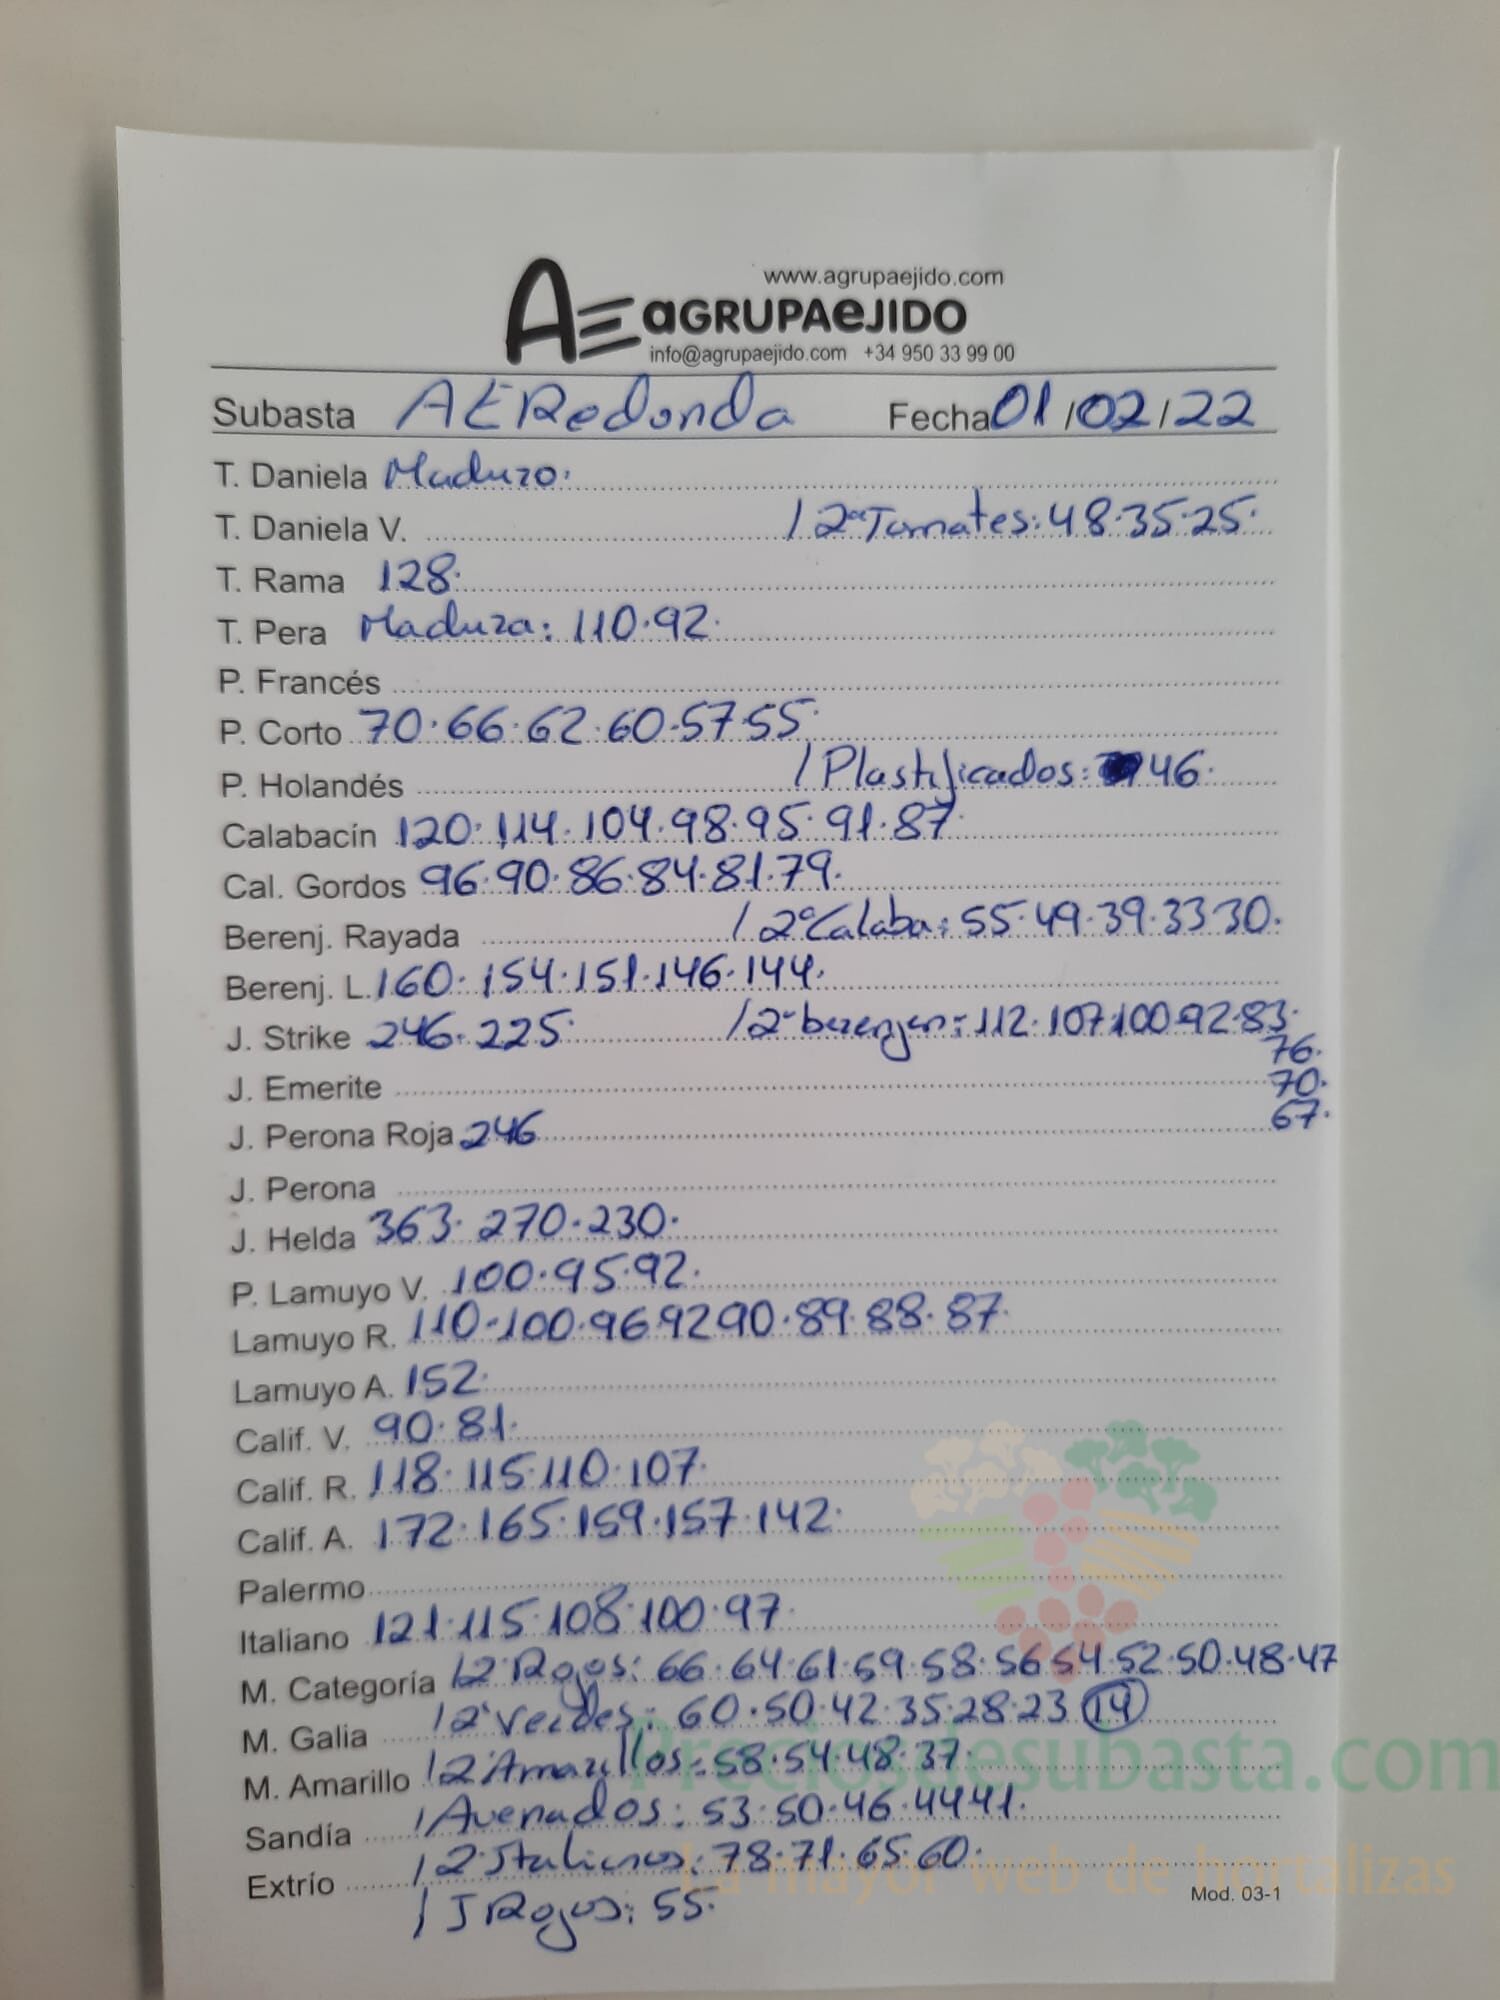 www.agrupaejido.com
AE aGRUPAeJIDO
info@agrupaejido.com +34 950 33 99 00
Subasta AE Redonda Fecha 01/02/22
T. Daniela Maduro.
T. Daniela V. / 2ª Tomates: 48.35.25.
T. Rama 128.
T. Pera Madura: 110.92.
P. Francés
P. Corto 70.66.62.60.57.55.
P. Holandés / Plastificados: 46.
Calabacín 120.114.104.98.95.91.87.
Cal. Gordos 96.90.86.84.81.79.
Berenj. Rayada / 2ª Calaba: 55.49.39.33 30.
Berenj. L. 160.154.151.146.144.
J. Strike 246.225. / 2ª berenjen: 112.107.100.92.83.
76.
J. Emerite 70.
J. Perona Roja 246 67.
J. Perona
J. Helda 363.270.230.
P. Lamuyo V. 100.95.92.
Lamuyo R. 110.100.96 92 90.89.88.87.
Lamuyo A. 152.
Calif. V. 90.81.
Calif. R. 118.115.110.107.
Calif. A. 172.165.159.157.142.
Palermo
Italiano 121.115.108.100.97.
M. Categoría / 2ª Rojos: 66.64.61.59.58.56 54.52.50.48.47
M. Galia / 2ª Verdes: 60.50.42.35.28.23 14
M. Amarillo / 2ª Amarillos: 58.54.48.37.
Sandía / Avenados: 53.50.46.44 41.
Extrío / 2ª Italianos: 78.71.65.60.
/ J Rojos: 55.
Mod. 03-1
Preciosdesubasta.com
La mayor web de hortalizas